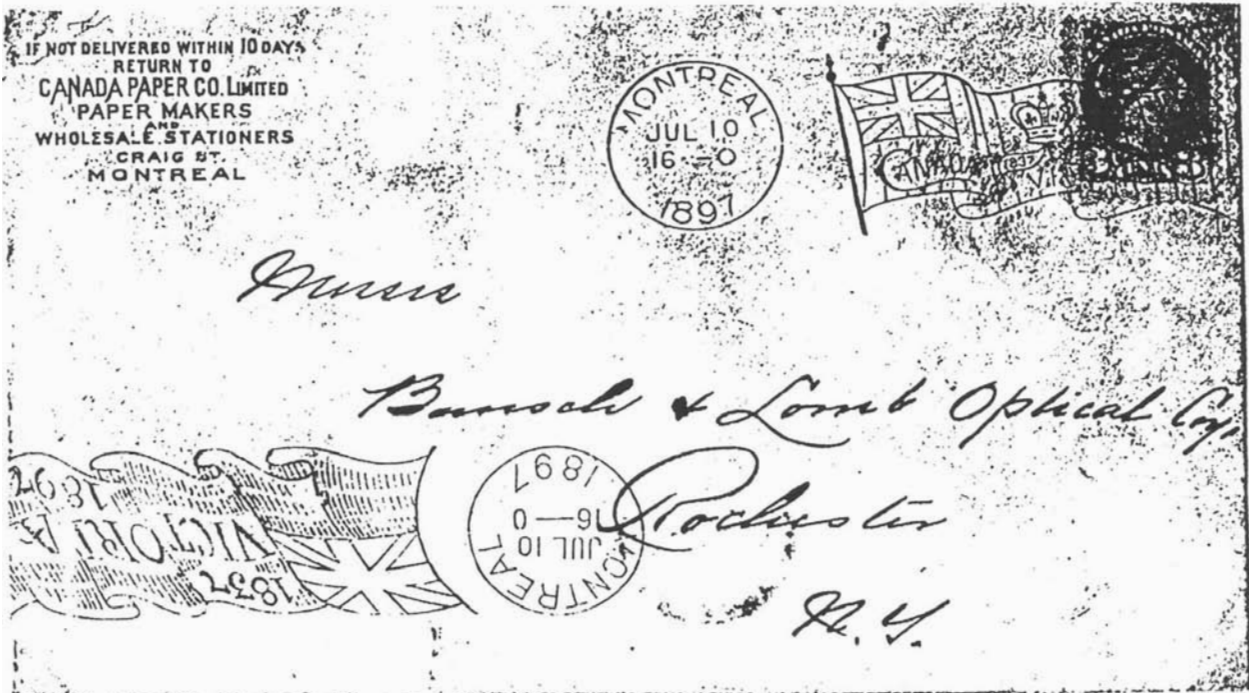 IF NOT DELIVERED WITHIN 10 DAYS
RETURN TO
CANADA PAPER CO. LIMITED
PAPER MAKERS
AND
WHOLESALE STATIONERS
CRAIG ST.
MONTREAL
MONTREAL
JUL 10
16 - 0
1897
CANADA
1897
Messrs
Bausch & Lomb Optical Coy.
Rochester
N. Y.
MONTREAL
JUL 10
16 — 0
1897
1837
VICTORIA
1897